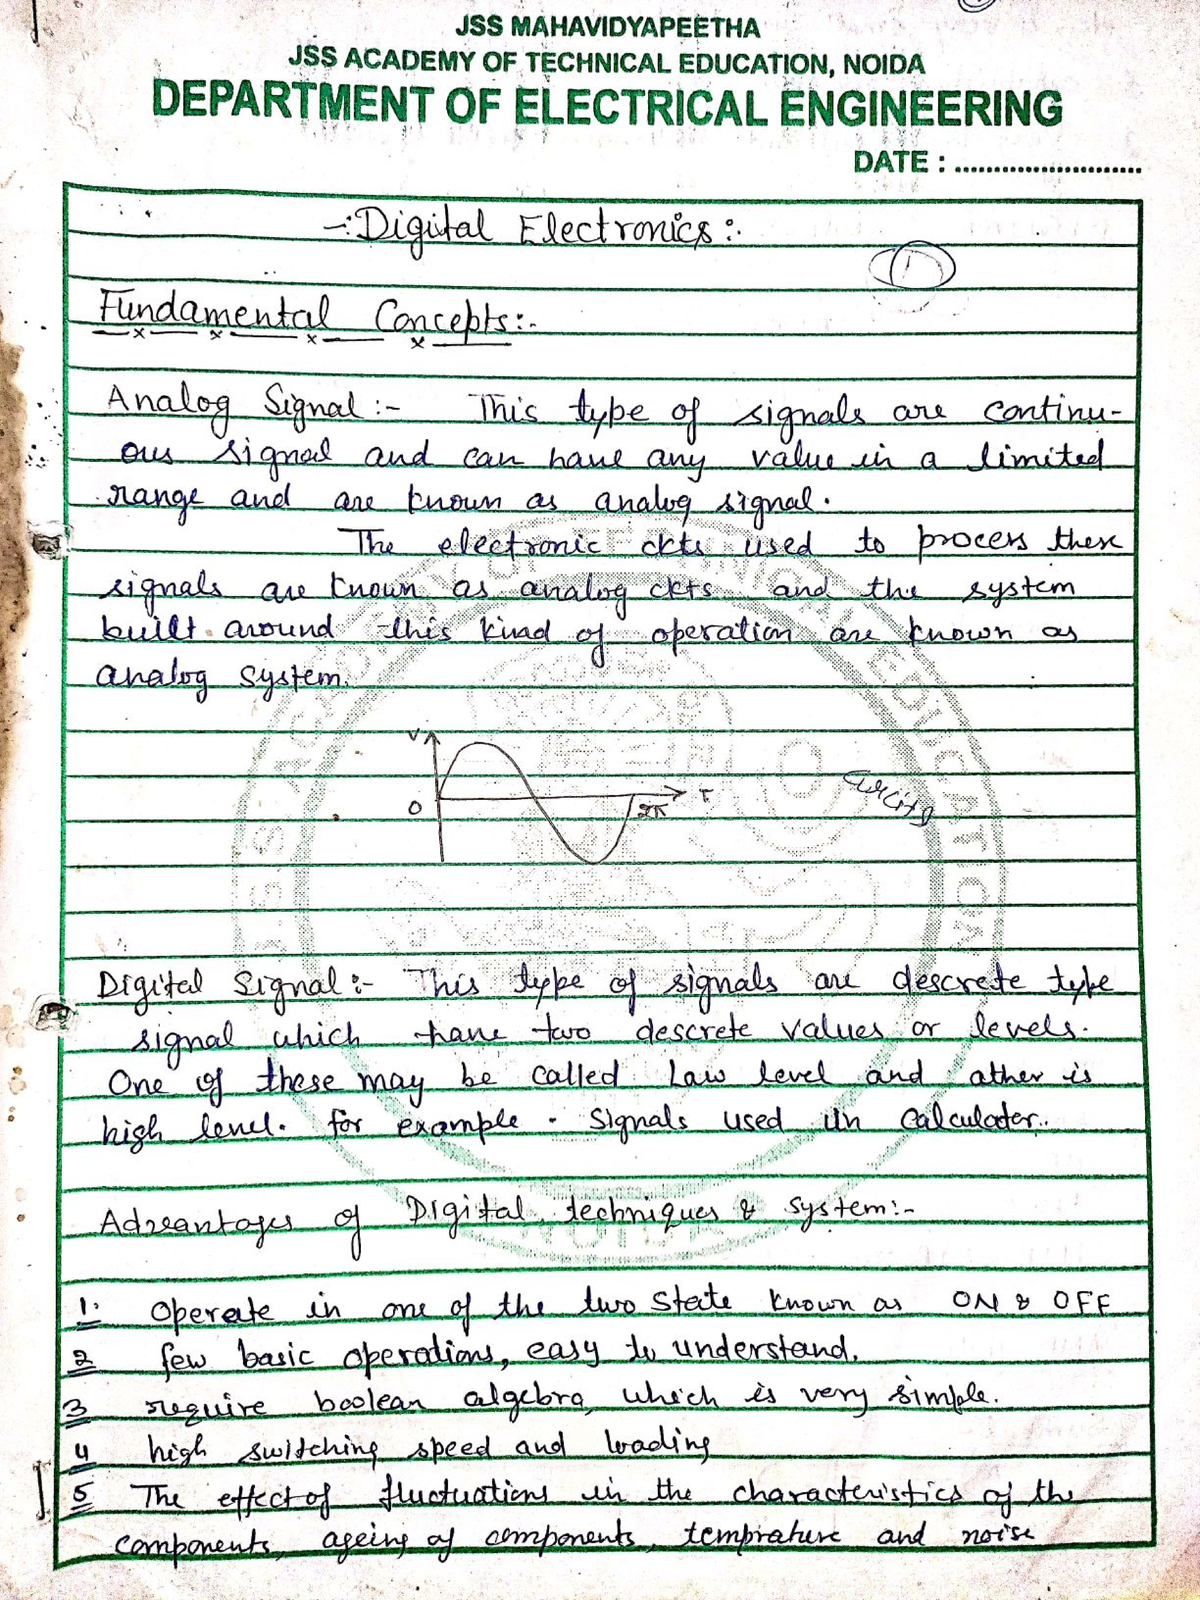 JSS MAHAVIDYAPEETHA
JSS ACADEMY OF TECHNICAL EDUCATION, NOIDA
DEPARTMENT OF ELECTRICAL ENGINEERING
DATE : ..........................
-: Digital Electronics :-
1
Fundamental Concepts:-
Analog Signal :- This type of signals are continu-
ous signal and can have any value in a limited
range and are known as analog signal.
The electronic ckts used to process these
signals are known as analog ckts and the system
built around this kind of operation are known as
analog system.
V
0
2π
T
Digital Signal :- This type of signals are descrete type
signal which have two descrete values or levels.
One of these may be called Law level and ather is
high level. for example - Signals used in Calculator..
Advantages of Digital techniques & system:-
1. Operate in one of the two State known as ON & OFF
2 few basic operations, easy to understand.
3 require boolean algebra, which is very simple.
4 high switching speed and loading
5 The effect of fluctuations in the characteristics of the
components, ageing of components, temprature and noise